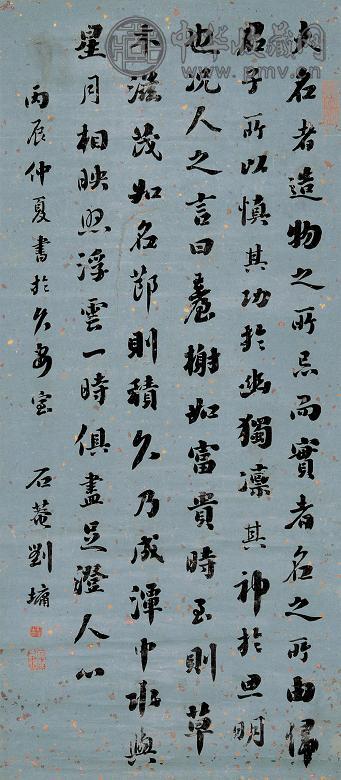 中华收藏网
www.pmv.cn
夫名者造物之所忌而實者名之所由歸
君子所以慎其功於幽獨凜其神於思明
也況人之言曰臺榭如富貴時至則草
木滋茂如名節則積久乃成潭中與
星月相映照浮雲一時俱盡足澄人心
丙辰仲夏書於久安室 石菴劉墉